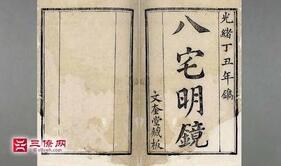 光緒丁丑年鐫
八宅明鏡
文奎堂藏板
三僚网